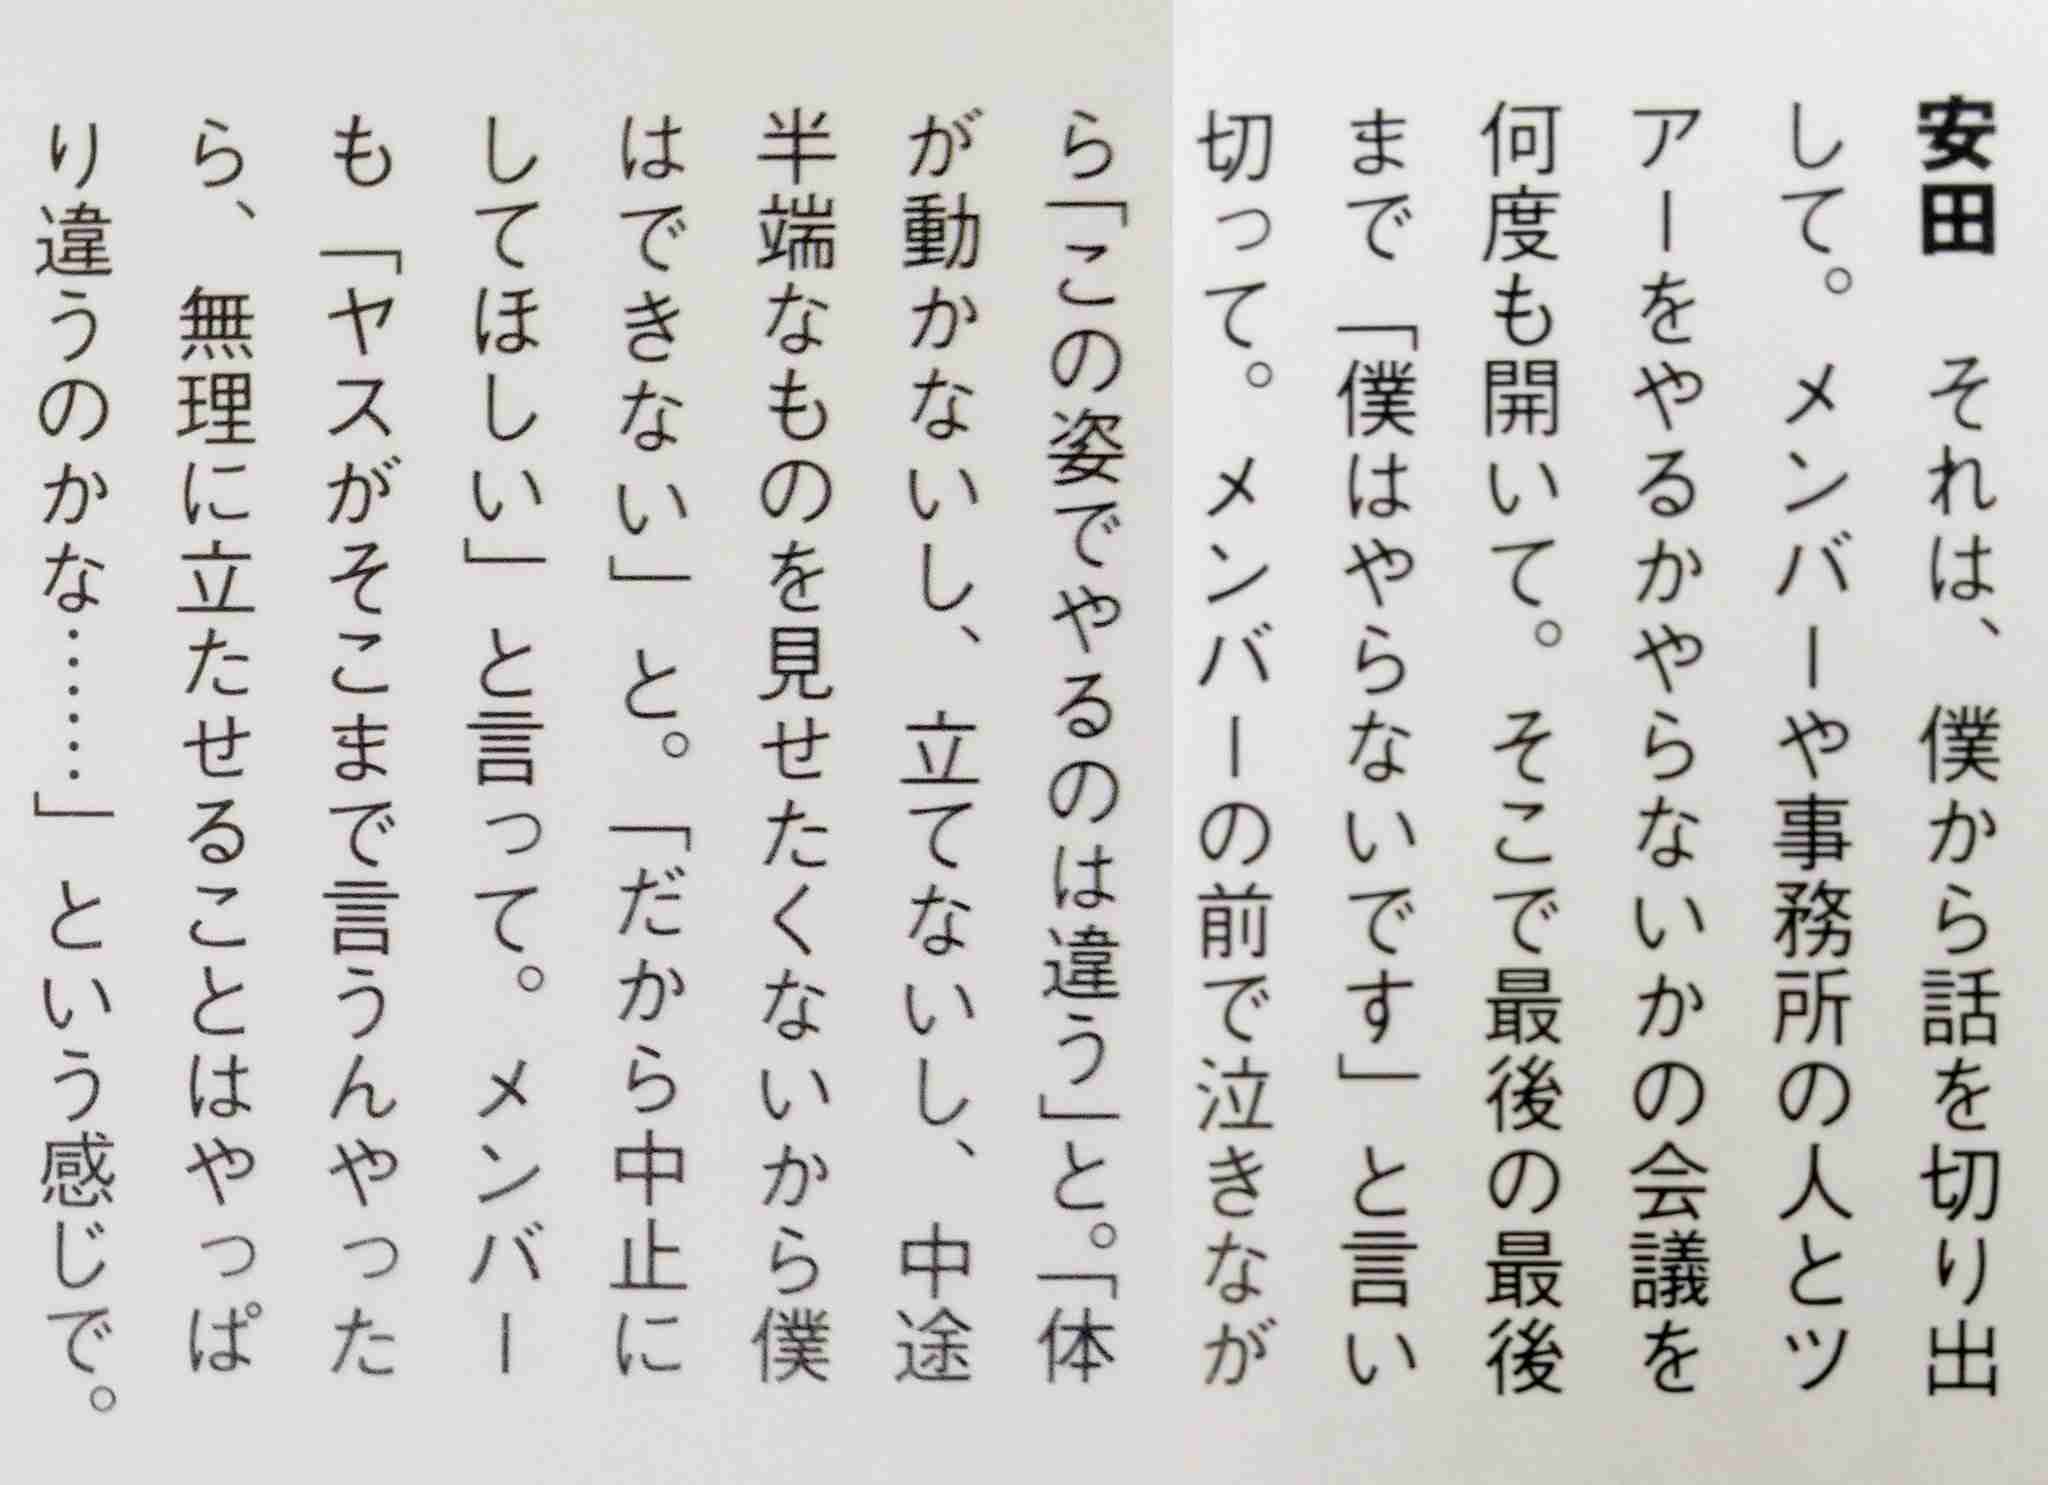 安田　それは、僕から話を切り出
して。メンバーや事務所の人とツ
アーをやるかやらないかの会議を
何度も開いて。そこで最後の最後
まで「僕はやらないです」と言い
切って。メンバーの前で泣きなが
ら「この姿でやるのは違う」と。「体
が動かないし、立てないし、中途
半端なものを見せたくないから僕
はできない」と。「だから中止に
してほしい」と言って。メンバー
も「ヤスがそこまで言うんやった
ら、無理に立たせることはやっぱ
り違うのかな……」という感じで。